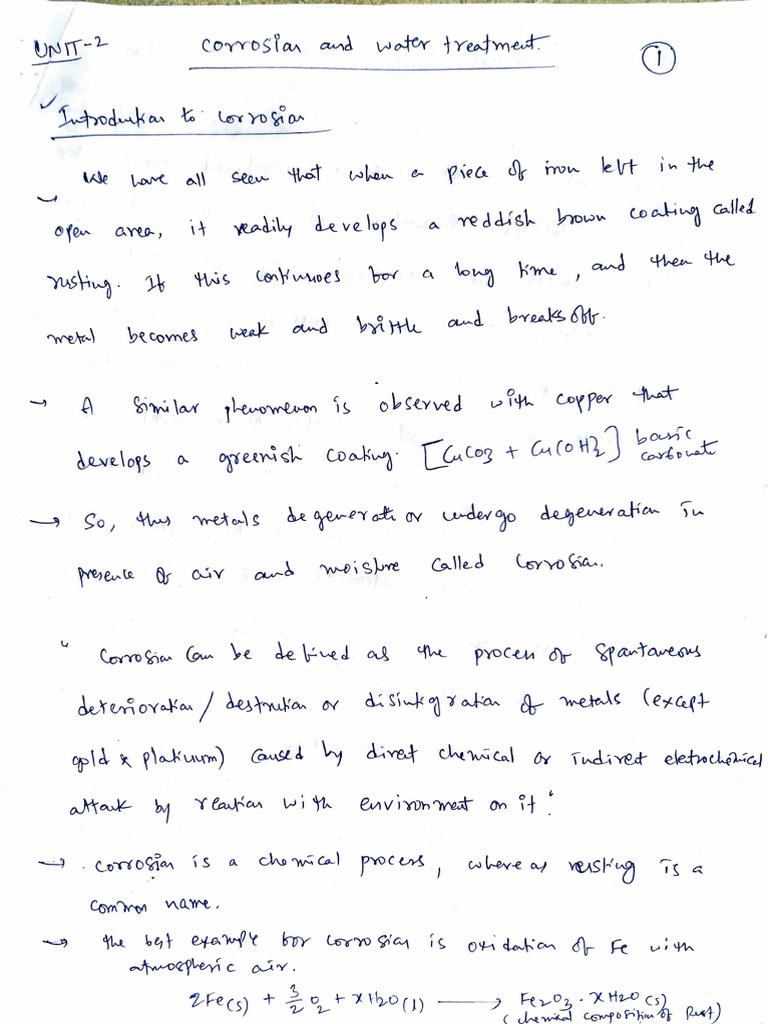 UNIT-2 Corrosion and water treatment. 1
Introduction to corrosion
We have all seen that when a piece of iron left in the
open area, it readily develops a reddish brown coating called
rusting. If this continues for a long time, and then the
metal becomes weak and brittle and breaks off.
→ A similar phenomenon is observed with copper that
develops a greenish coating. [CuCO3 + Cu(OH)2] basic carbonate
→ So, thus metals degenerate or undergo degeneration in
presence of air and moisture called corrosion.
" Corrosion can be defined as the process of spontaneous
deterioration/destruction or disintegration of metals (except
gold & platinum) caused by direct chemical or indirect eletrochemical
attack by reaction with environment on it."
→ Corrosion is a chemical process, where as rusting is a
common name.
→ The best example for corrosion is oxidation of Fe with
atmospheric air.
2Fe(s) + 3/2 O2 + xH2O(l) → Fe2O3·xH2O(s)
(chemical composition of Rust)